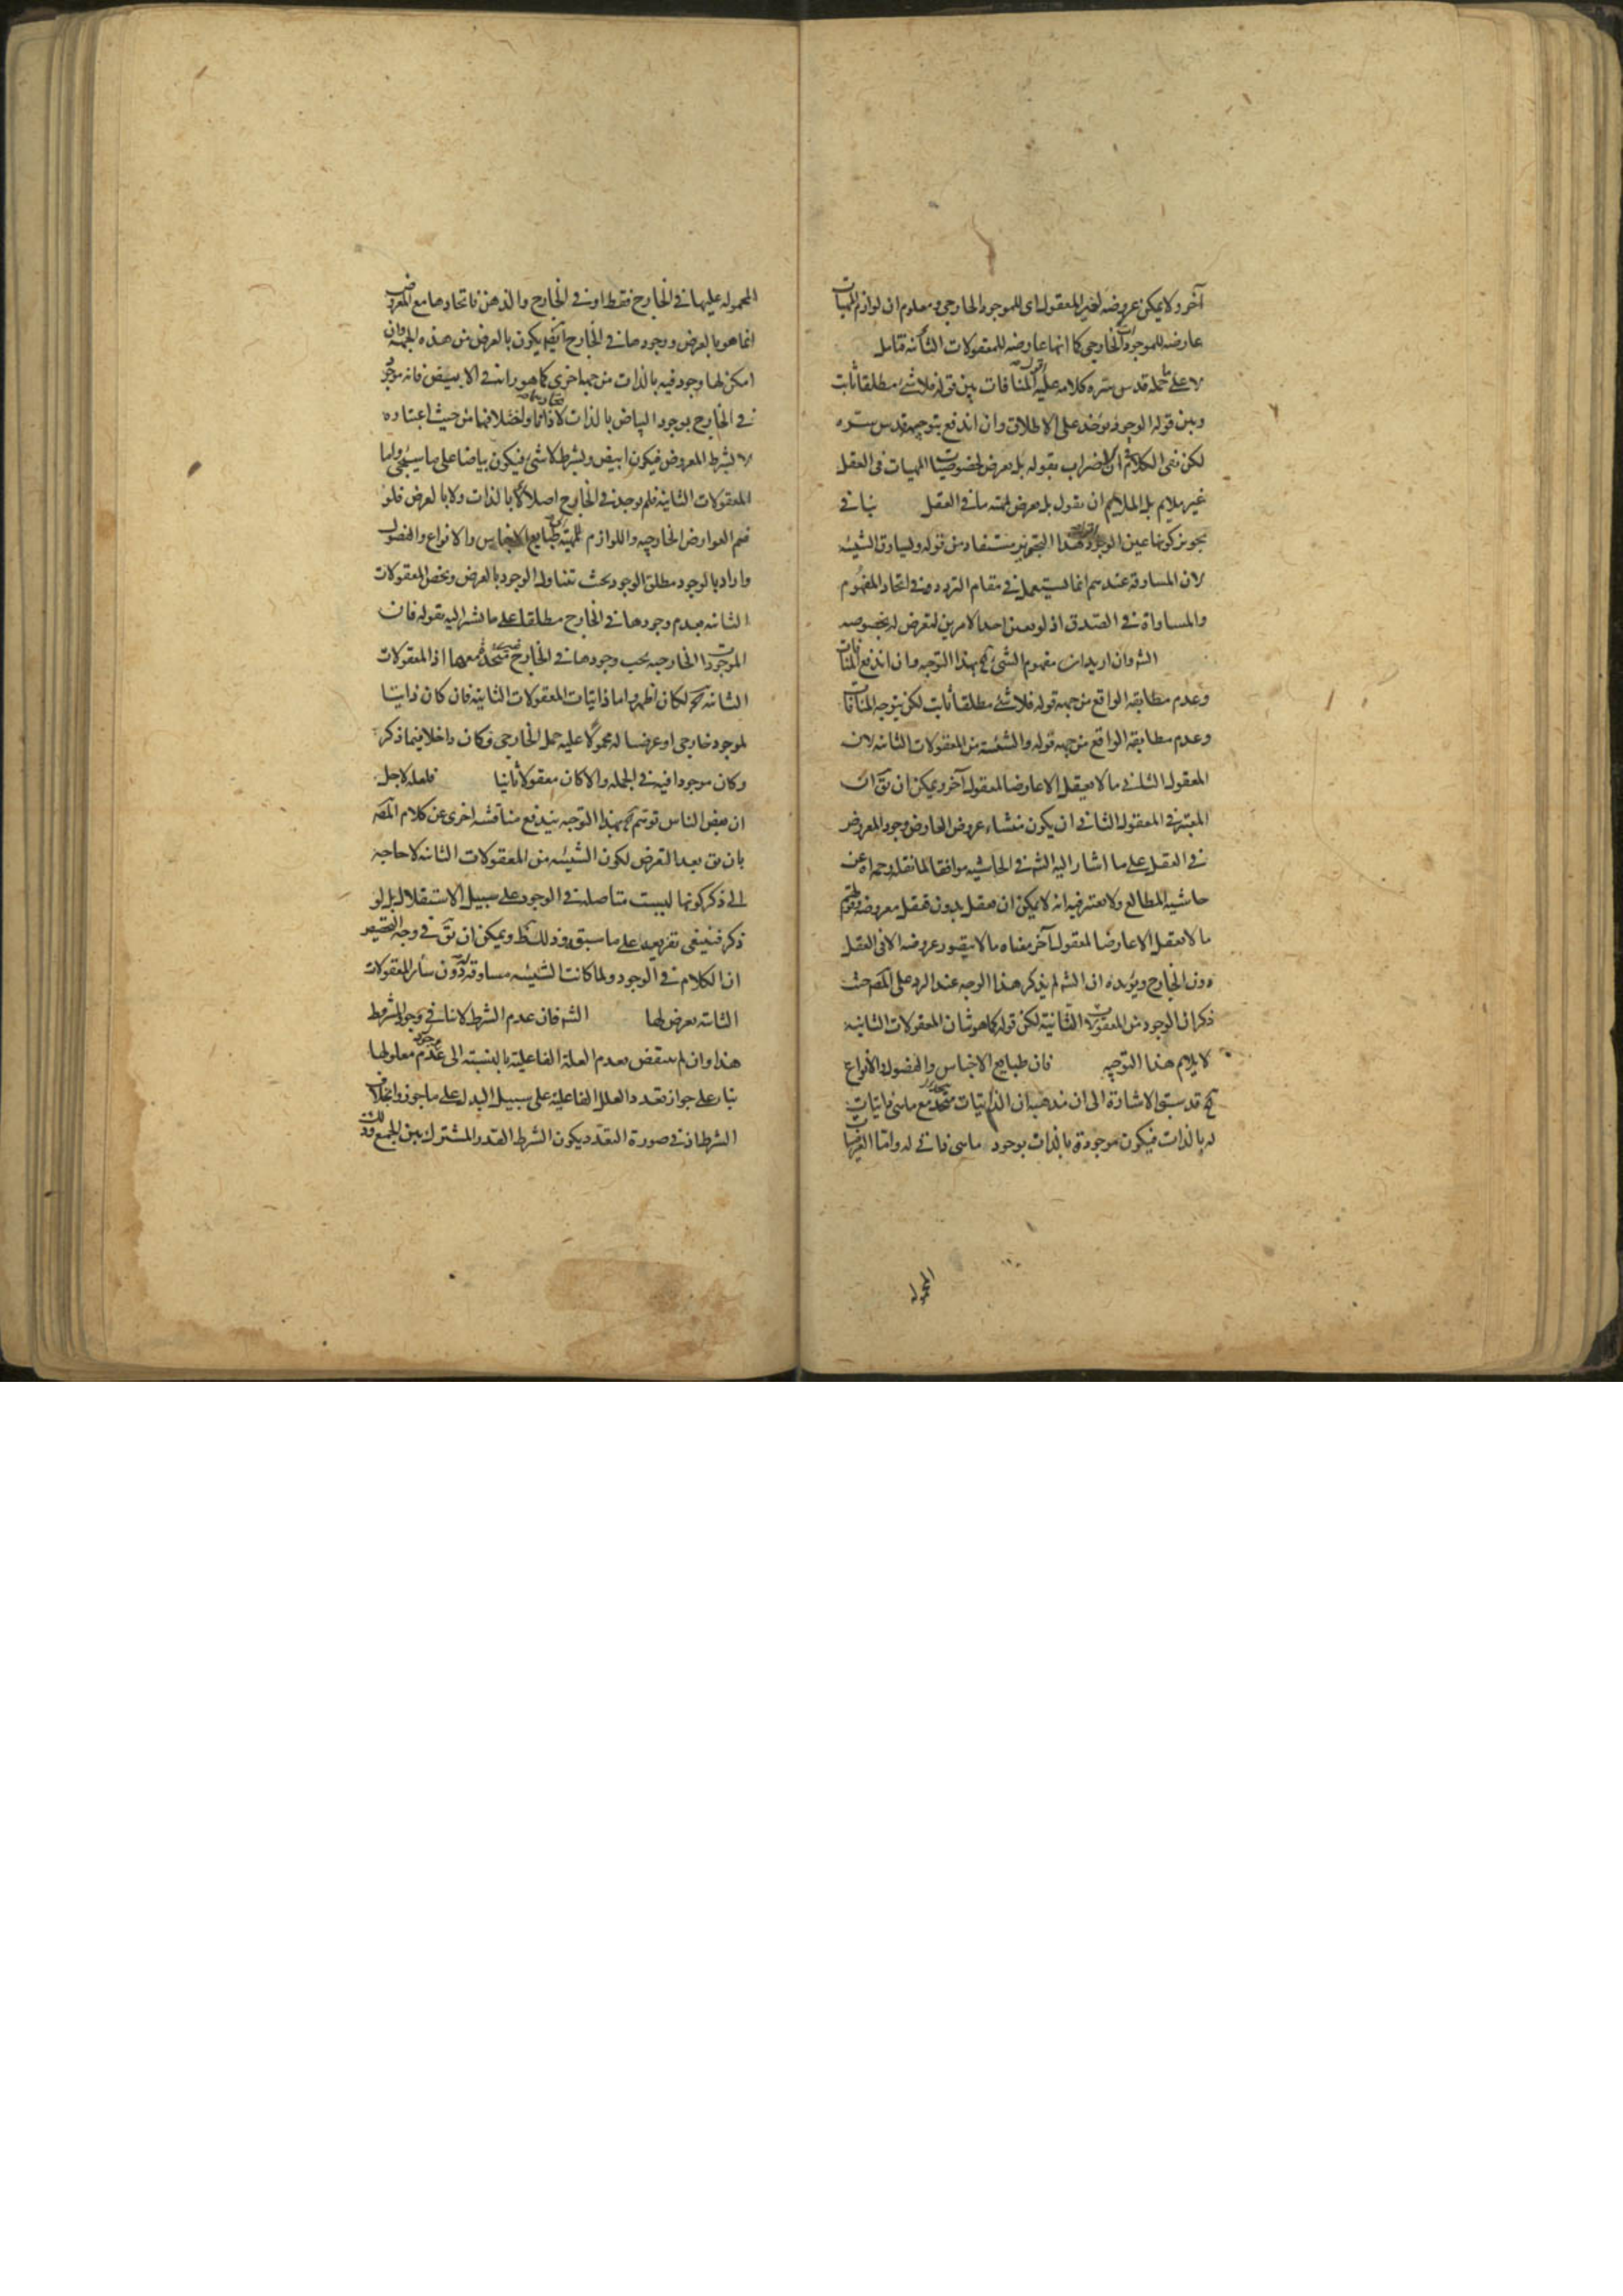 آخر ولا يمكن عروضه لغير المعقول اى للموجود الخارجى ومعلوم ان لوازم المهيات
عارضه للموجودات الخارجى كما انها عارضه للمعقولات الثانيه فتامل
لا على ما حمله قدس سره كلامه عليه المنافات بين قوله فلا شئ مطلقا ثابت
وبين قوله الوجود يوخذ على الاطلاق وان اندفع بتوجيهه قدس سره
لكن نفى الكلام ثم الاضراب بقوله بل يعرض لخصوصيات المهيات فى العقل
غير ملايم بل الملايم ان يقول بل يعرض لمهيه ما فى العقل ينافى
تجويز كونها عين الوجود هذا التجويز مستفاد من قوله ويساوق الشيئيه
لان المساوقه عندهم انما يستعمل فى مقام التردد منه فى اتحاد المفهوم
والمساواة فى الصدق اذ لو تعين احد الامرين لتعرض له بخصوصه
الش وان اريد ان مفهوم الشئ بهذا التوجيه وان اندفع المنافات
وعدم مطابقه الواقع من جهه قوله فلا شئ مطلقا ثابت لكن يتوجه المنافات
وعدم مطابقه الواقع من جهه قوله والشيئيه من المعقولات الثانيه لان
المعقول الثانى ما لا يعقل الا عارضا لمعقول آخر ويمكن ان يق ان
المعتبر فى المعقول الثانى ان يكون منشاء عروض العارض وجود المعروض
فى العقل على ما اشار اليه الش فى الحاشيه موافقا لما نقله رحمه الله عن
حاشيه المطالع ولا يعتبر فيه انه لا يمكن ان يعقل بدون تعقل معروضه وقولهم
ما لا يعقل الا عارضا لمعقول آخر معناه ما لا يتصور عروضه الا فى العقل
دون الخارج ويؤيده ان الش لم يذكر هذا الوجه عند الرد على المص حيث
ذكر ان الوجود من المعقولات الثانية لكن قوله كما هو شان المعقولات الثانيه
لا يلايم هذا التوجيه فان طبايع الاجناس والفصول والانواع
قد سبق الاشارة الى ان مذهبه ان الذاتيات متحد مع ما هى ذاتيات
له بالذات فيكون موجودة بالذات بوجود ما هى ذاتى له واما العرضيات
المحموله
المحموله عليها فى الخارج فقط او فى الخارج والذهن فاتحادها مع المعروض
انما هو بالعرض ووجودها فى الخارج ايضا يكون بالعرض من هذه الجهه وان
امكن لها وجود فيه بالذات من جهه اخرى كما هو رايه فى الابيض فانه موجود
فى الخارج بوجود البياض بالذات لاتحادهما ذاتا واختلافهما من حيث اعتباره
لا بشرط المعروض فيكون ابيض وبشرط لا شئ فيكون بياضا على ما سيجئ واما
المعقولات الثانيه فلم يوجد فى الخارج اصلا لا بالذات ولا بالعرض فلو
ضم العوارض الخارجيه واللوازم المهيه طبايع الاجناس والانواع والفصول
واراد بالوجود مطلق الوجود بحيث تناوله الوجود بالعرض ويخص المعقولات
الثانيه بعدم وجودها فى الخارج مطلقا على ما يشير اليه بقوله فان
الموجودات الخارجيه بحسب وجودها فى الخارج متحد معها اذ المعقولات
الثانيه لكان اظهر واما ذاتيات المعقولات الثانيه فان كان ذاتيا
لموجود خارجى او عرضيا له محمولا عليه حمل الخارجى فكان داخلا فيما ذكر
وكان موجودا فيه فى الجمله والا كان معقولا ثانيا فلعله لاجل
ان بعض الناس توهم بهذا التوجيه يندفع مناقشه اخرى عن كلام المص
بان يق بعد التعرض لكون الشيئيه من المعقولات الثانيه لا حاجه
الى ذكر كونها ليست متاصله فى الوجود على سبيل الاستقلال بل لو
ذكر فينبغى تفريعه على ما سبق وذلك ظ ويمكن ان يق فى وجه التخصيص
ان الكلام فى الوجود ولما كانت الشيئيه مساوقه له دون سائر المعقولات
الثانيه تعرض لها الش فان عدم الشرط لا ينافى وجود المشروط
هذا وان لم ينتقض بعدم العلة الفاعلية بالنسبة الى عدم معلولها
بناء على جواز تعدد العلل الفاعلية على سبيل البدل على ما جوز وا بخلاف
الشرط اذ فى صورة التعدد يكون الشرط القدر المشترك بين الجمع وذلك